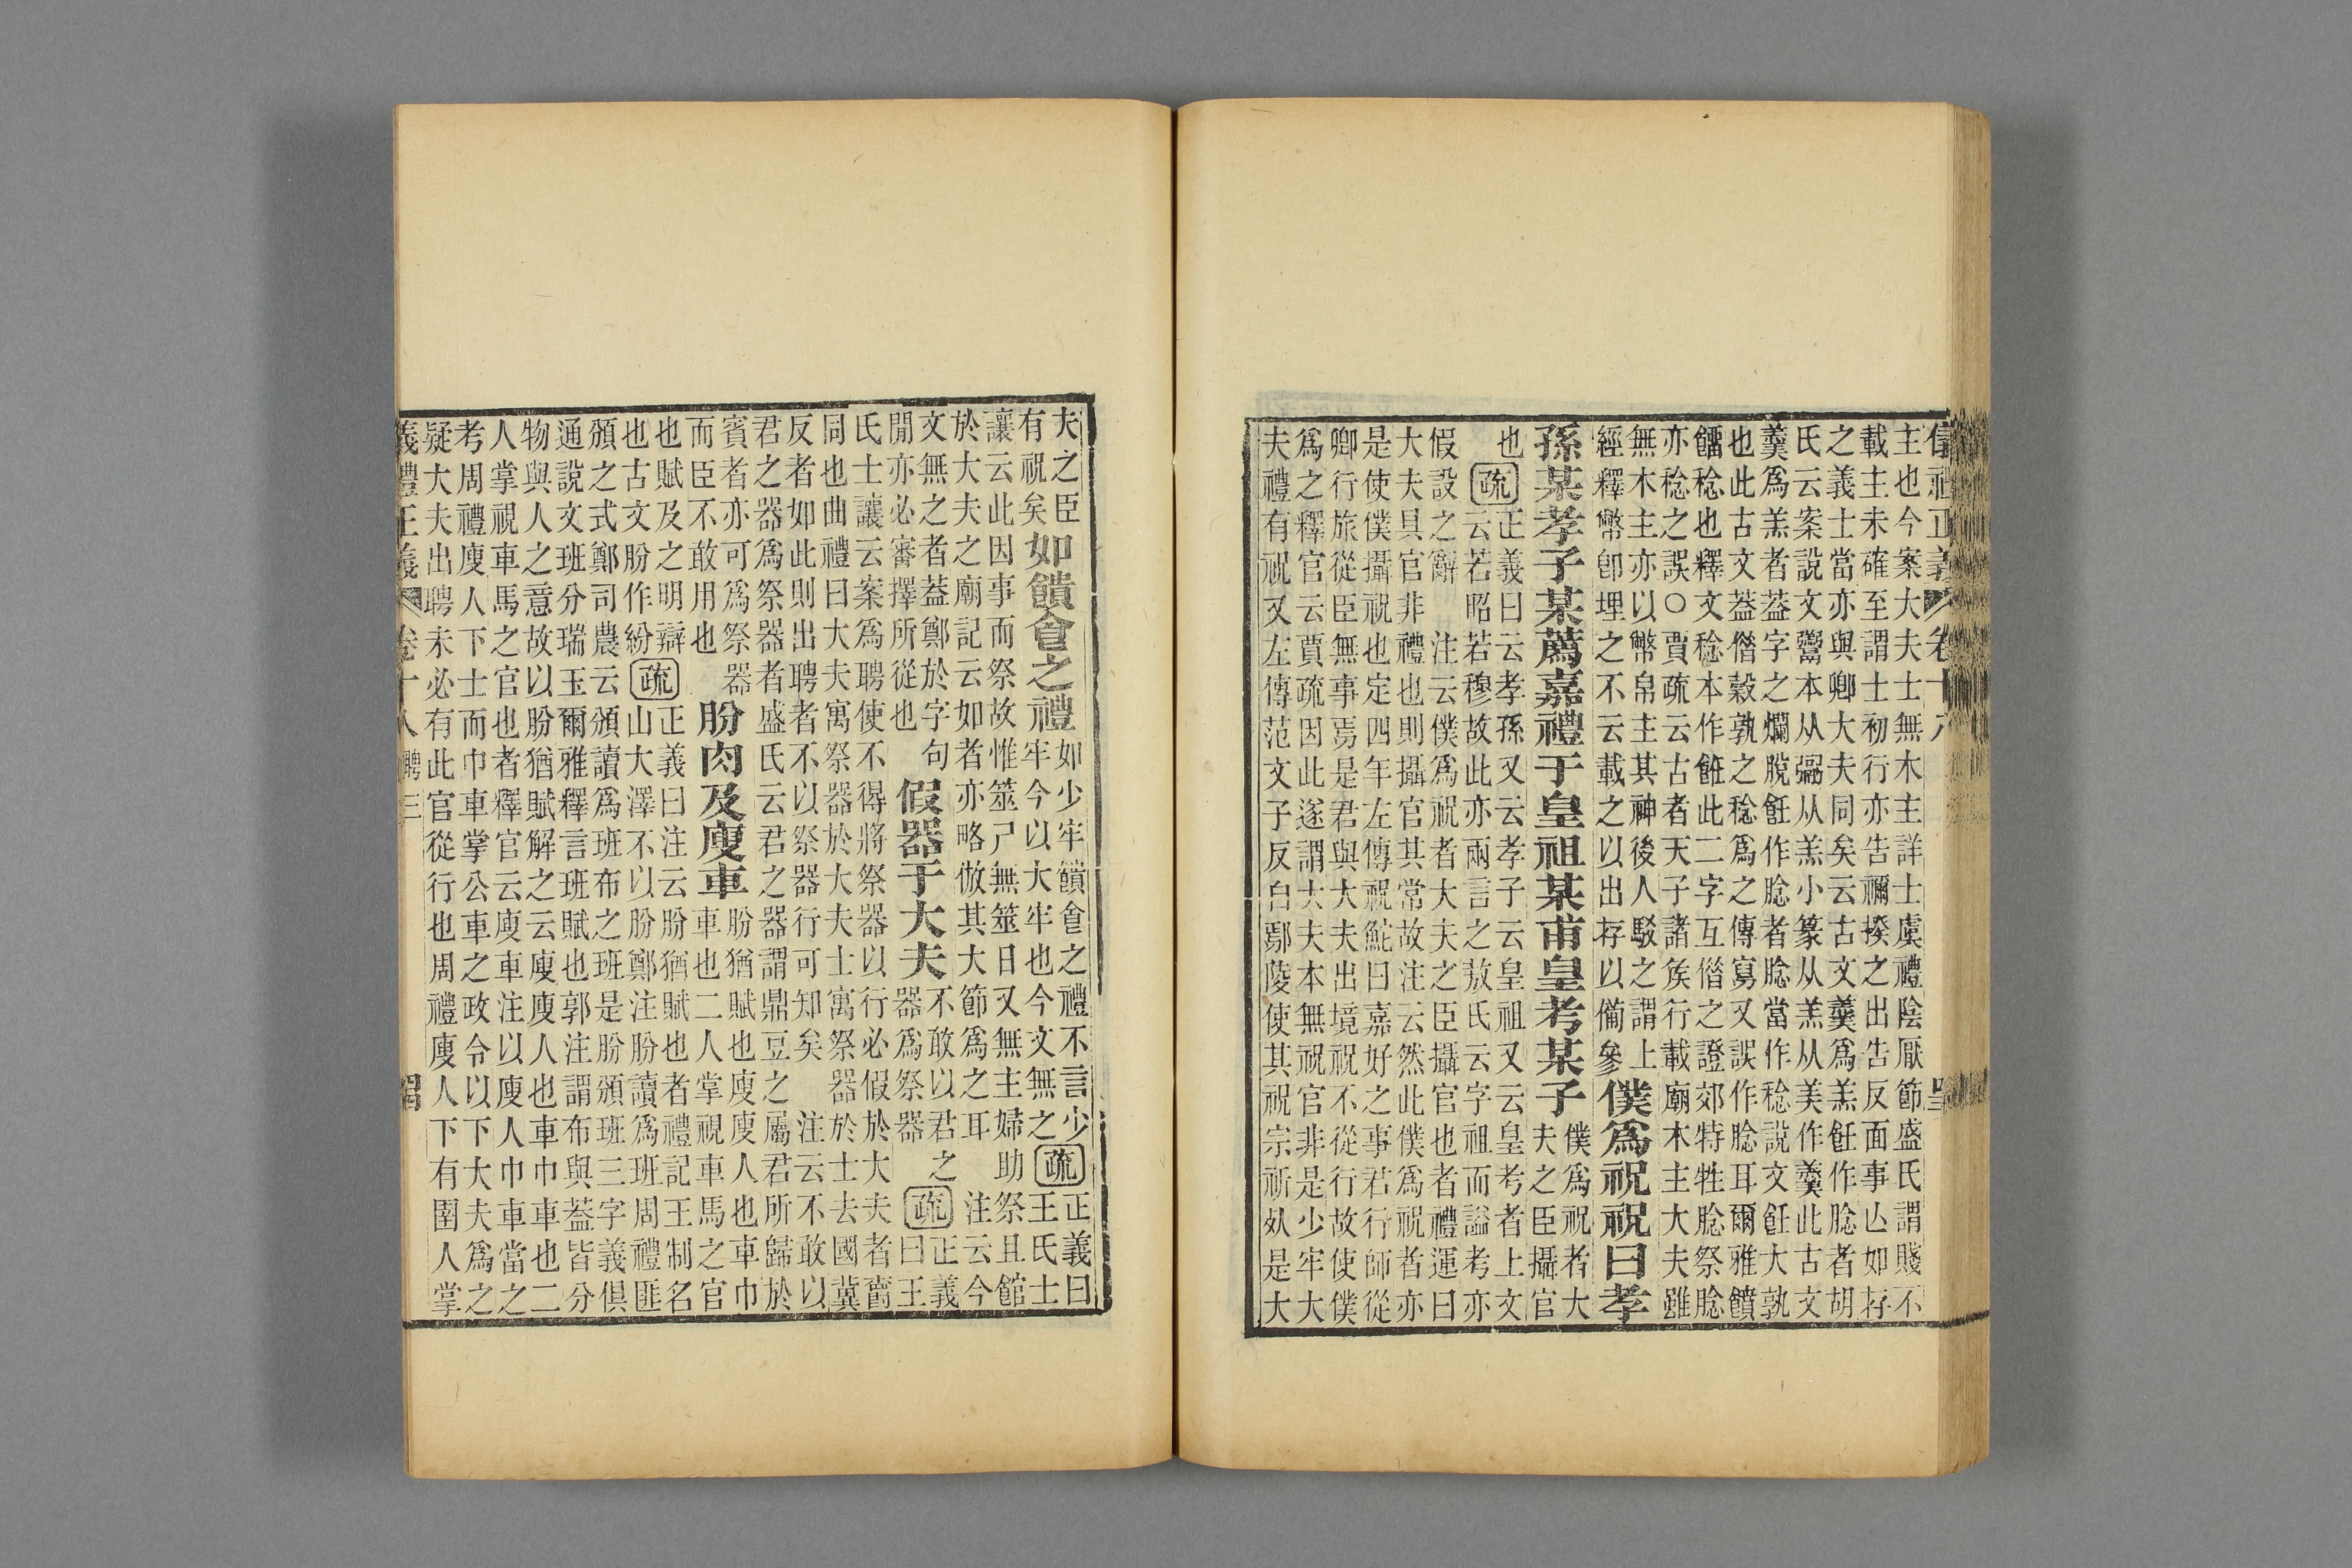 主也今案大夫士無木主詳士虞禮陰厭節盛氏謂賤不
載主未確至謂士初行亦告禰揆之出告反面事亾如存
之義士當亦與卿大夫同矣云古文羹爲羔飪作腍者胡
氏云案說文鬻本从𩰲从羔小篆从羔从美作羹此古文
羹爲羔者葢字之爛脫飪作腍者腍當作稔說文飪大孰
也此古文葢僭穀孰之稔爲之傳寫又誤作腍耳爾雅饙
餾稔也釋文稔本作餁此二字互僭之證郊特牲腍祭腍
亦稔之誤〇賈疏云古者天子諸矦行載廟木主大夫雖
無木主亦以幣帛主其神後人駁之謂上
經釋幣卽埋之不云載之以出存以僃參
僕爲祝祝曰孝
孫某孝子某薦嘉禮于皇祖某甫皇考某子
僕爲祝者大
夫之臣攝官
也
疏
正義曰云孝孫又云孝子云皇祖又云皇考者上文
云若昭若穆故此亦兩言之敖氏云字祖而謚考亦
假設之辭 注云僕爲祝者大夫之臣攝官也者禮運曰
大夫具官非禮也則攝官其常故注云然此僕爲祝者亦
是使僕攝祝也定四年左傳祝鮀曰嘉好之事君行師從
卿行旅從臣無事焉是君與大夫出境祝不從行故使僕
爲之釋官云賈疏因此遂謂大夫本無祝官非是少牢大
夫禮有祝又左傳范文子反自鄢陵使其祝宗祈𣦸是大
夫之臣
有祝矣
如饋食之禮
如少牢饋食之禮不言少
牢今以大牢也今文無之
疏
正義曰
王氏士
讓云此因事而祭故惟筮尸無筮日又無主婦助祭且館
於大夫之廟記云如者亦略倣其大節爲之耳 注云今
文無之者葢鄭於字句
閒亦必審擇所從也
假器于大夫
不敢以君之
器爲祭器
疏
正義
曰王
氏士讓云案爲聘使不得將祭器以行必假於大夫者齎
同也曲禮曰大夫寓祭器於大夫士寓祭器於士去國冀
反者如此則出聘者不以祭器行可知矣 注云不敢以
君之器爲祭器者盛氏云君之器謂鼎豆之屬君所歸於
賓者亦可爲祭器
而臣不敢用也
朌肉及廋車
朌猶賦也廋廋人也車巾
車也二人掌視車馬之官
也賦及之明辯
也古文朌作紛
疏
正義曰注云朌猶賦也者禮記王制名
山大澤不以朌鄭注朌讀爲班周禮匪
頒之式鄭司農云頒讀爲班布之班是朌頒班三字義俱
通說文班分瑞玉爾雅釋言班賦也郭注謂布與葢皆分
物與人之意故以朌猶賦解之云廋廋人也車巾車也二
人掌視車馬之官也者釋官云廋車注以廋人巾車當之
考周禮廋人下士而巾車掌公車之政令以下大夫爲之
疑大夫出聘未必有此官從行也周禮廋人下有圉人掌
禮正義 卷十八 聘三